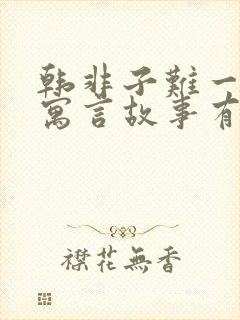 韩非子難一
寓言故事有
襟花無香